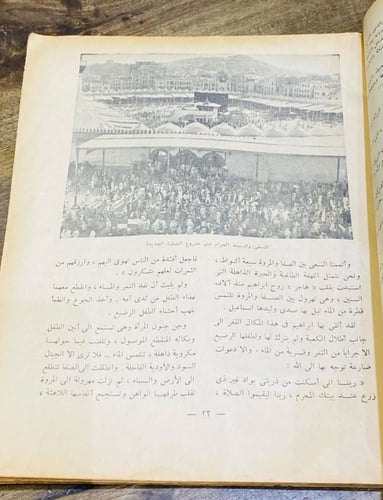 المسعى والمسجد الحرام قبل مشروع العمارة الجديدة
وأتممنا السعي بين الصفا والمروة سبعة أشواط ،
ونحن نتمثل اللهفة الطاغية والحيرة الذاهلة التي
استبدت بقلب « هاجر » زوج ابراهيم منذ آلاف
السنين ، وهي تهرول بين الصفا والمروة تلتمس
قطرة من الماء تبل بها صدى وليدها اسماعيل .
لقد ألقى بها ابراهيم في هذا المكان القفر الى
جانب أطلال الكعبة ولم يترك لها ولطفلها الرضيع
الا جرابا من التمر وقربة من الماء . والا دعوات
ضارعة توجه بها الى الله :
« ربنا انى أسكنت من ذريتى بواد غير ذى
زرع عند بيتك المحرم ، ربنا ليقيموا الصلاة ،
فاجعل أفئدة من الناس تهوى اليهم ، وارزقهم من
الثمرات لعلهم يشكرون » .
ولم يلبث أن نفد التمر والماء ، وانقطع معهما
غذاء الطفل من ثدى أمه . وأخذ الجوع والظمأ
يلهب أحشاء الطفل الرضيع .
وجن جنون المرأة وهى تستمع الى أنين الطفل
وبكائه المتقطع الموصول ، وتلفتت فيما حولها
مكروبة ذاهلة ، تلتمس الماء .. فلا ترى الا الجبال
السود والأودية القاحلة . وانطلقت الى الصفا تتطلع
الى الأرض والسماء ، ثم نزلت مهرولة الى المروة
تقلب طرفها الواهن وتستجمع أنفاسها اللاهثة ،
— ٢٢ —